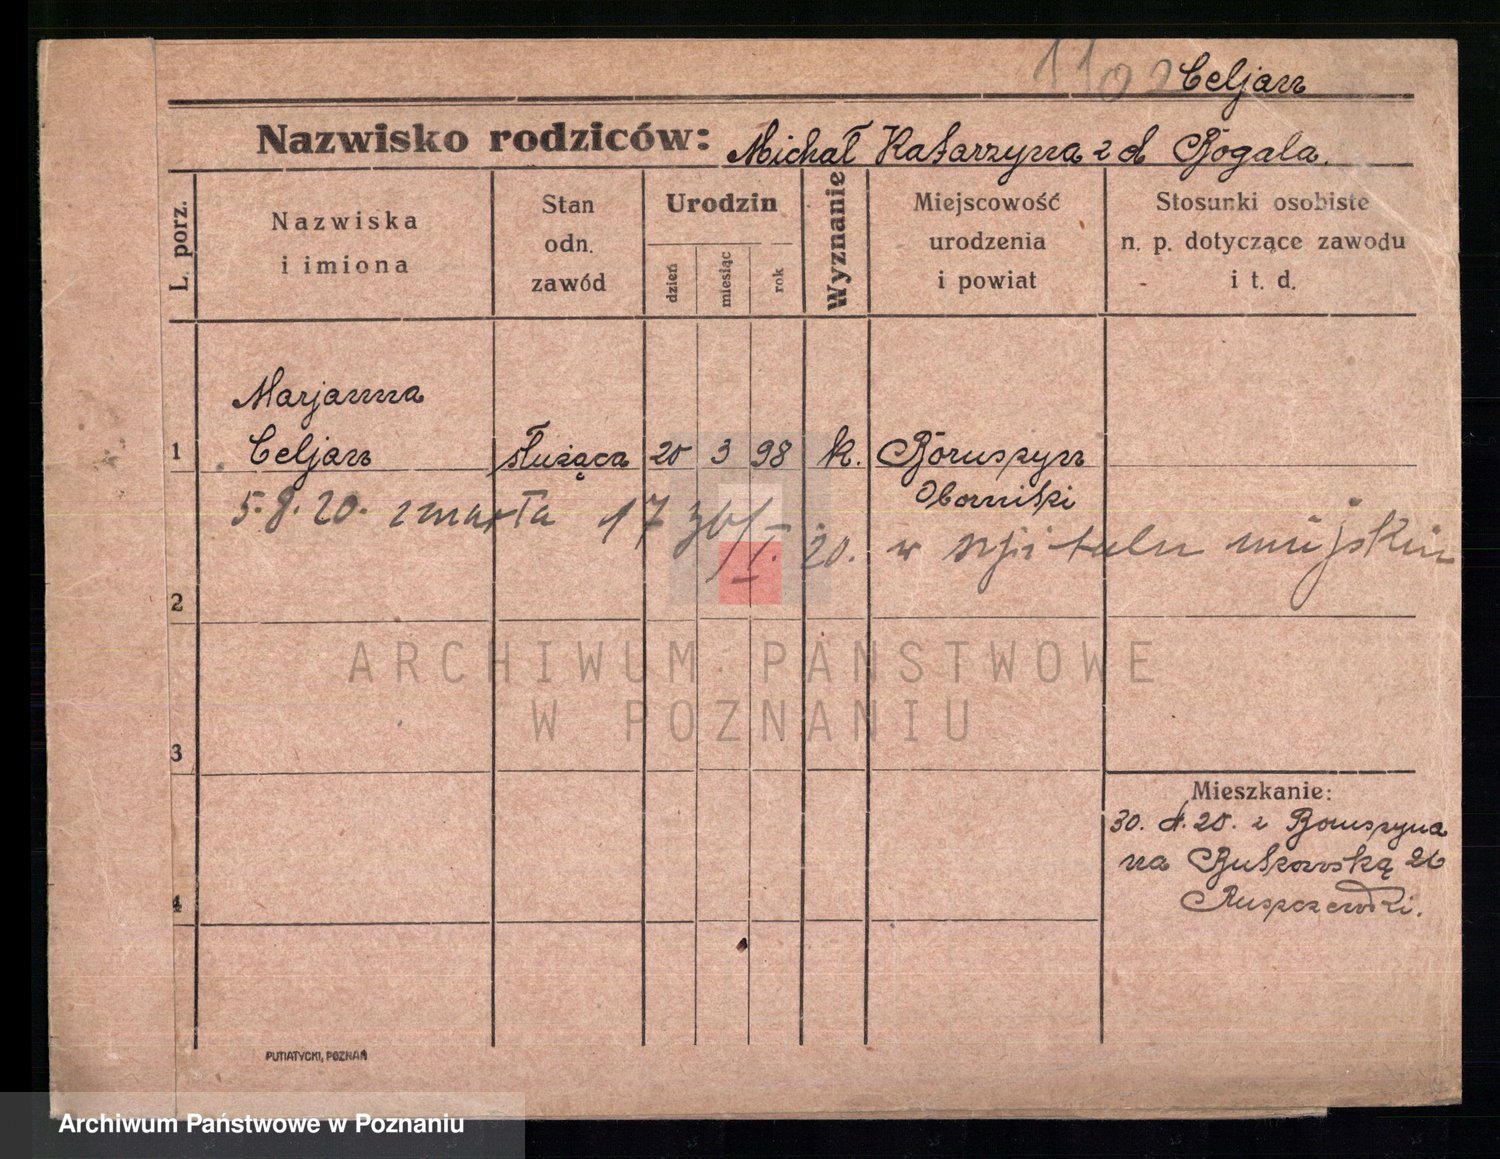 1102 Celjan
Nazwisko rodziców: Michał Katarzyna z d Rogala.
L. porz.
Nazwiska
i imiona
Stan
odn.
zawód
Urodzin
dzień
miesiąc
rok
Wyznanie
Miejscowość
urodzenia
i powiat
Stosunki osobiste
n. p. dotyczące zawodu
i t. d.
Marjanna
1 Celjan służąca 20 3 98 k. Boruszyn
Obornicki
5. 8. 20. zmarła 17 I. 20. w szpitalu miejskim
2
ARCHIWUM PAŃSTWOWE
W POZNANIU
3
Mieszkanie:
30. 4. 20. z Boruszyna
na Bukowską 26
4
PUTIATYCKI, POZNAŃ
Archiwum Państwowe w Poznaniu